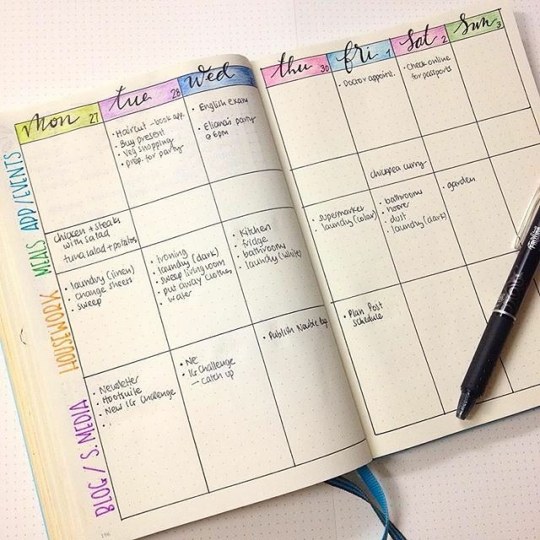 mon 27
tue 28
wed
thu 30
fri 1
sat 2
sun 3
APP/EVENTS
• Haircut - book app.
• Buy present
• Veg shopping
• prep. for party
• English exam
• Eliana's party
@ 6pm
• Doctor appoint.
• Check online
for passports
MEALS
chicken + steaks
with salad
tuna salad + potatoes
chickpea curry
HOUSEWORK
• laundry (linen)
• change sheets
• sweep
• Ironing
• laundry (dark)
• sweep living room
• put away clothes
• water
• Kitchen
• fridge
• bathrooms
• laundry (white)
• supermarket
• laundry (colour)
• bathrooms
• hoover
• dust
• laundry (dark)
• garden
BLOG / S. MEDIA
• Newsletter
• Hootsuite
• New IG Challenge
•
• NE
• IG Challenge
— catch up
• Publish
• Plan Post
schedule